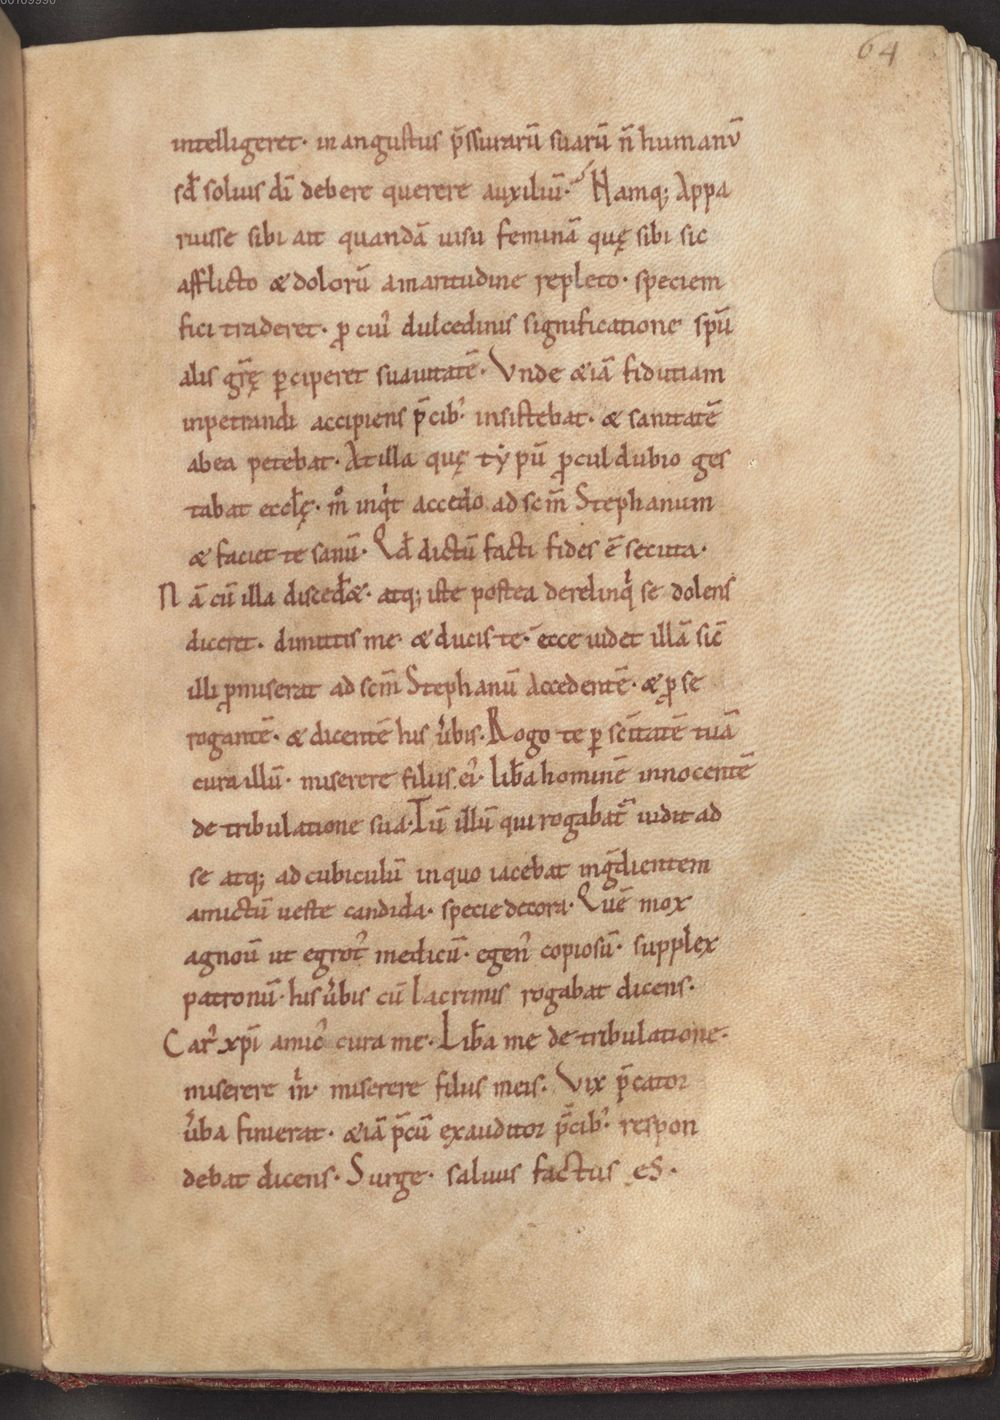 64
intelligeret· in angustus p̄ssurarū suarū n̄ humanū
sꝺ̄ solius dī debere querere auxiliū· Namq; Appa
ruisse sibi ait quandā uisu feminā quę sibi sic
afflicto & dolorū amaritudine repleto· speciem
fici traderet· ꝓ cui᾽ dulcedinis significatione sp̄u
alis gr̄ę ꝑciperet suauitatē· Vnde &iā fidutiam
inpetrandi accipiens p̄cib᾽ insistebat· & sanitatē
abea petebat· At illa quę tẏpū ꝓcul dubio ges
tabat eccl̄ę· m̊ inqͥt accedo ad sc̄m Stephanum
& faciet te sanū· Qd̄ dictū facti fides ē secuta·
Nā cū illa disced̄&· atq; iste postea derelinqͥ se dolens
diceret· dimittis me· & ducis te· ecce uidet illā sic̄
illi ꝓmiserat ad sc̄m Stephanū Accedentē· & ꝓ se
rogantē· & dicentē his u᾽bis· Rogo te ꝑ sc̄itatē tuā
cura illū· miserere filiis ei᾽· lib̄a hominē innocentē
de tribulatione sua· Tū illū qui rogabat᾽ uidit ad
se atq; ad cubiculū in quo iacebat inḡdientem
amictū ueste candida· specie decora· Quē mox
agnoū ut egrot᾽ medicū· egen᾽ copiosū· supplex
patronū· his u᾽bis cū lacrimis rogabat dicens·
Car᾽ xp̄i amic᾽ cura me· Lib̄a me de tribulatione·
miserere m͛· miserere filiis meis· Vix p̄cator
u᾽ba finierat· &iā p̄cū exauditor p̄cib᾽ respon
debat dicens· Surge· saluus factus es·